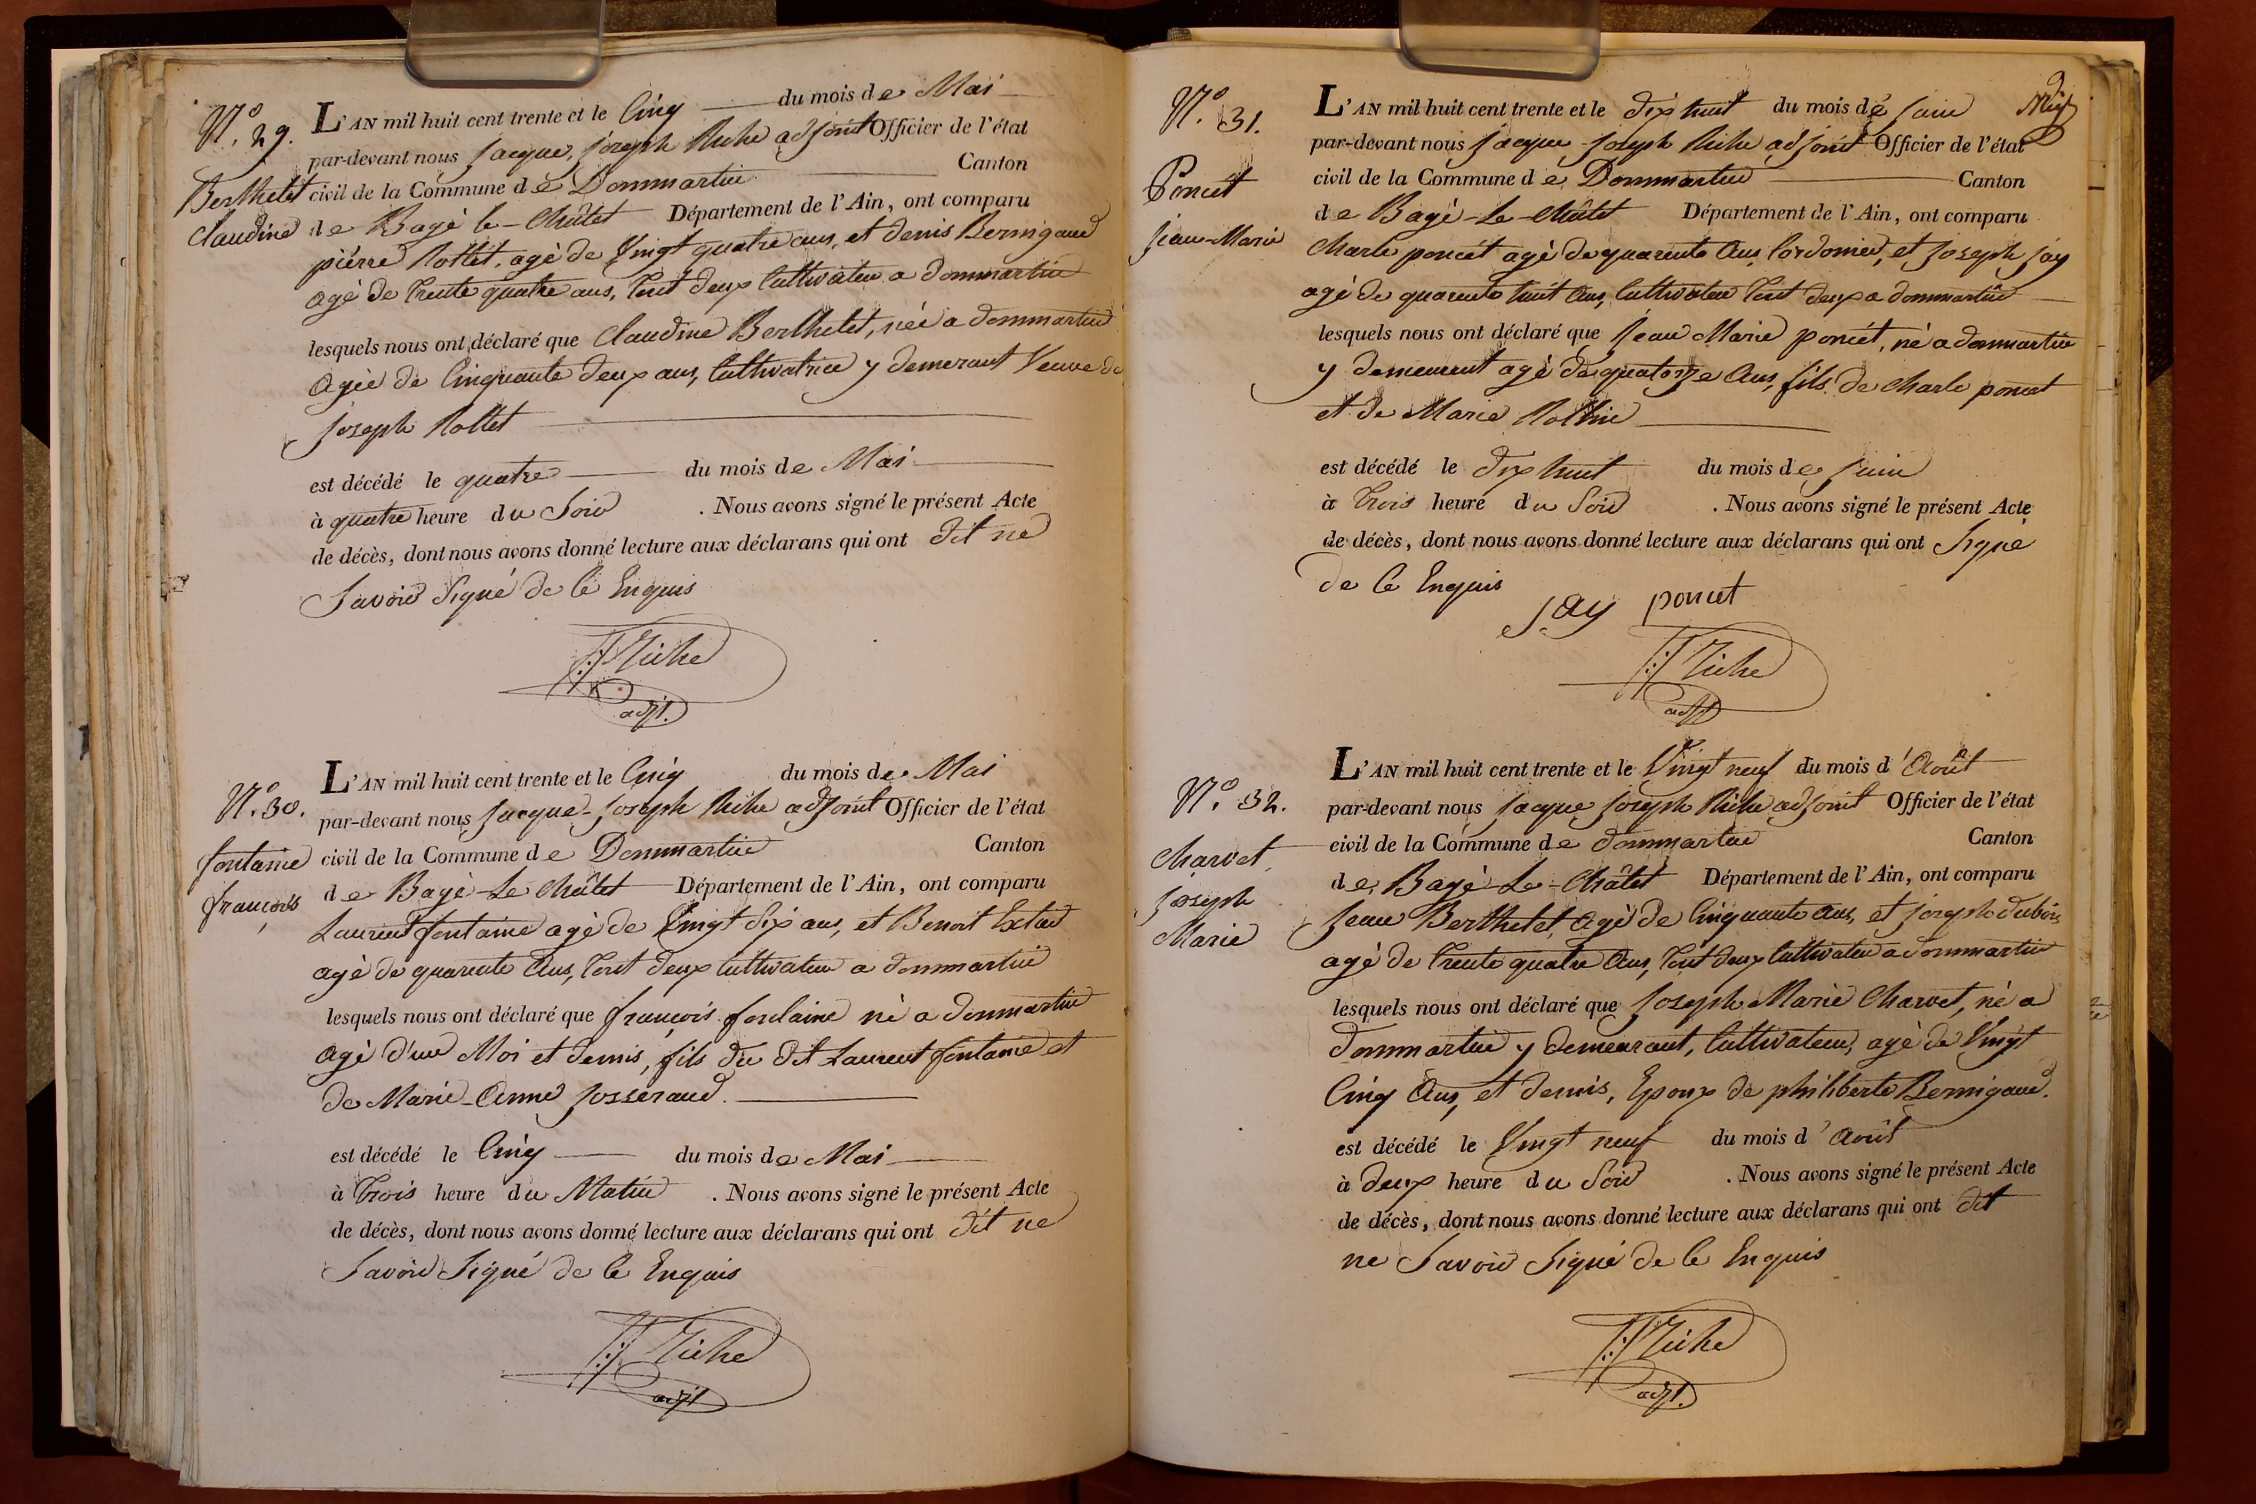 N.º 29.
Berthelet
Claudine
L'AN mil huit cent trente et le Cinq du mois de Mai
par-devant nous Jacque, joseph Riche adjoint Officier de l'état
civil de la Commune de Dommartin Canton
de Bagé le-Châtel Département de l'Ain, ont comparu
piérre Rollet, agé de Vingt quatre ans, et denis Bernigaud
agé de trente quatre ans, tout deux Cultivateur a dommartin
lesquels nous ont déclaré que Claudine Berthelet, née a dommartin
agée de Cinquante deux ans, Cultivatrice y demerant Veuve de
joseph Rollet
est décédé le quatre du mois de Mai
à quatre heure du Soir . Nous avons signé le présent Acte
de décès, dont nous avons donné lecture aux déclarans qui ont dit ne
Savoir Signé de Ce Enquis
JJ Riche
adjt.
N.º 30.
fontaine
françois
L'AN mil huit cent trente et le Cinq du mois de Mai
par-devant nous Jacque-joseph Riche adjoint Officier de l'état
civil de la Commune de Dommartin Canton
de Bagé-Le Châtel Département de l'Ain, ont comparu
Laurent fontaine agé de Vingt Six ans, et Benoit
agé de quarente Ans, tout deux Cultivateur a dommartin
lesquels nous ont déclaré que françois fontaine né a dommartin
agé d'un Moi et demis, fils du dit Laurent fontaine et
de Marie-Anne josserand.
est décédé le Cinq du mois de Mai
à trois heure du Matin . Nous avons signé le présent Acte
de décès, dont nous avons donné lecture aux déclarans qui ont dit ne
Savoir Signé de Ce Enquis
JJ Riche
adjt
N.º 31.
Poncet
jean-Marie
L'AN mil huit cent trente et le dix huit du mois de juin
par-devant nous jacque-joseph Riche adjoint Officier de l'état
civil de la Commune de Dommartin Canton
de Bagé-Le-Châtel Département de l'Ain, ont comparu
Charle poncet agé de quarente Ans, Cordonier, et joseph jay
agé de quarente huit Ans, Cultivateur tout deux a dommartin
lesquels nous ont déclaré que jean Marie poncet, né a dommartin
y demeurent agé de quatorze Ans, fils de Charle poncet
et de Marie Rollin
est décédé le dix huit du mois de juin
à trois heure du Soir . Nous avons signé le présent Acte
de décès, dont nous avons donné lecture aux déclarans qui ont Signé
de Ce Enquis
jay poncet
JJ Riche
adjt
N.º 32.
Charvet
joseph
Marie
L'AN mil huit cent trente et le Vingt neuf du mois d'Août
par-devant nous jacque joseph Riche adjoint Officier de l'état
civil de la Commune de dommartin Canton
de Bagé-Le-Châtel Département de l'Ain, ont comparu
jean Berthelet, agé de Cinquante ans, et joseph dubois
agé de trente quatre Ans, tout deux Cultivateur a dommartin
lesquels nous ont déclaré que joseph Marie Charvet, né a
dommartin y demeurant, Cultivateur, agé de Vingt
Cinq Ans, et demis, Epoux de philiberte Bernigaud.
est décédé le Vingt neuf du mois d'août
à deux heure du Soir . Nous avons signé le présent Acte
de décès, dont nous avons donné lecture aux déclarans qui ont dit
ne Savoir Signé de Ce Enquis
JJ Riche
adjt.